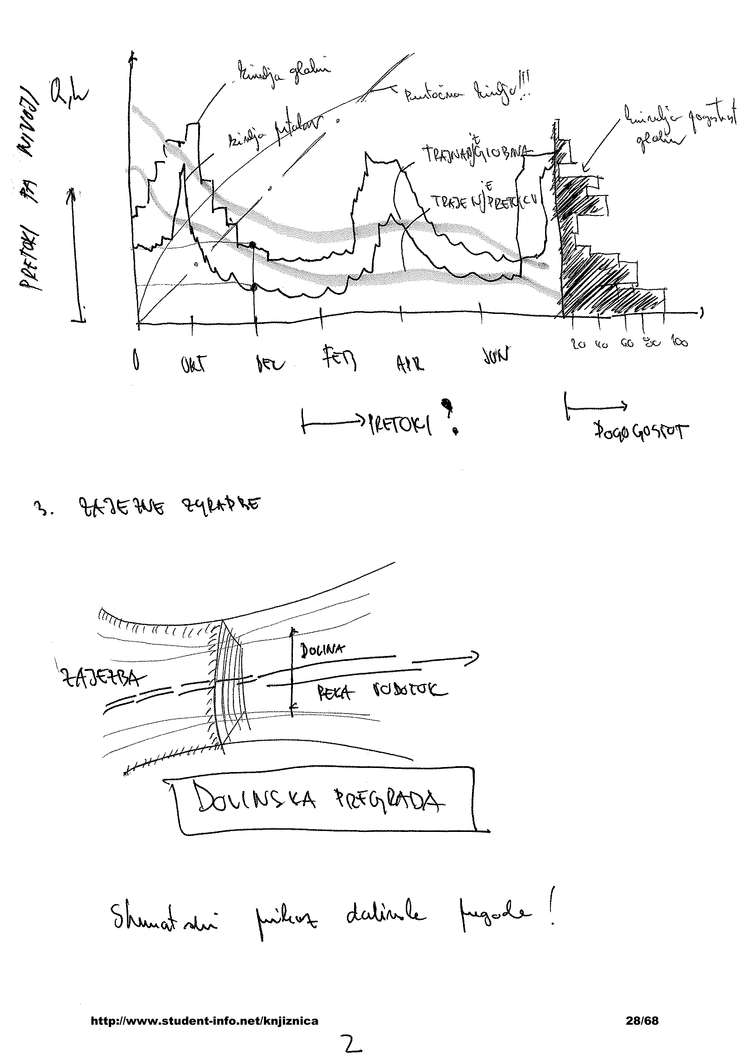 Q,h
PRETOKI PA NIVOJI
krivulja globin
krivulja pretokov
Pretočna krivulja!!!
krivulja pogostost
globin
TRAJNANJE GLOBINA
TRAJENJE PRETOKOV
0 OKT DEC FEB APR JUN
20 40 60 80 100
PRETOKI ?
POGOGOSTOT
3. ZAJEZNE ZGRADBE
DOLINA
ZAJEZBA
REKA VODOTOK
DOLINSKA PREGRADA
prikaz
!
http://www.student-info.net/knjiznica
28/68
2